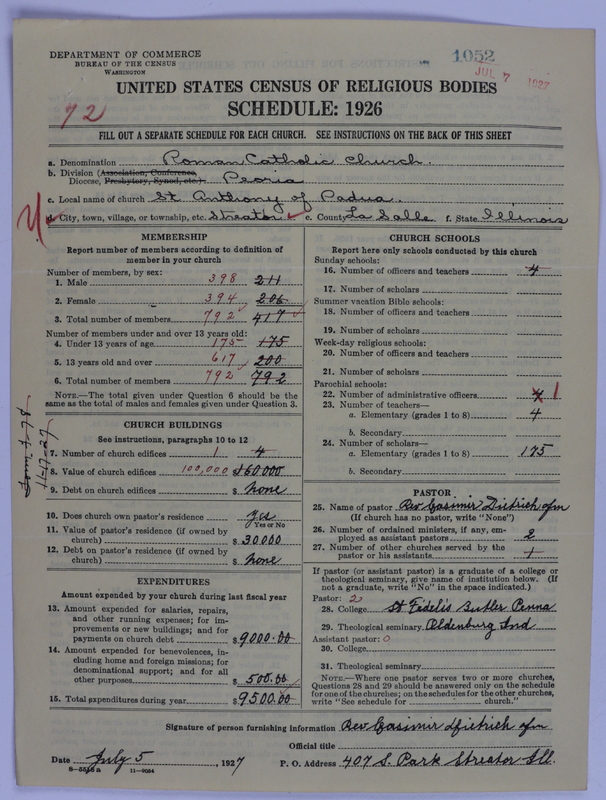 DEPARTMENT OF COMMERCE
BUREAU OF THE CENSUS
WASHINGTON
1052
JUL 7 1927
UNITED STATES CENSUS OF RELIGIOUS BODIES
SCHEDULE: 1926
72
FILL OUT A SEPARATE SCHEDULE FOR EACH CHURCH. SEE INSTRUCTIONS ON THE BACK OF THIS SHEET
a. Denomination Roman Catholic Church.
b. Division (Association, Conference,
Diocese, Presbytery, Synod, etc.) Peoria
c. Local name of church St. Anthony of Padua.
d. City, town, village, or township, etc. Streator e. County La Salle f. State Illinois
MEMBERSHIP
Report number of members according to definition of
member in your church
Number of members, by sex:
1. Male 398 211
2. Female 394 206
3. Total number of members 792 417
Number of members under and over 13 years old:
4. Under 13 years of age 175 175
5. 13 years old and over 617 200
6. Total number of members 792 792
NOTE.—The total given under Question 6 should be the
same as the total of males and females given under Question 3.
CHURCH BUILDINGS
See instructions, paragraphs 10 to 12
7. Number of church edifices 1 4
8. Value of church edifices 100,000 $160000
9. Debt on church edifices $ None
10. Does church own pastor's residence yes
Yes or No
11. Value of pastor's residence (if owned by
church) $30000
12. Debt on pastor's residence (if owned by
church) $ None
EXPENDITURES
Amount expended by your church during last fiscal year
13. Amount expended for salaries, repairs,
and other running expenses; for im-
provements or new buildings; and for
payments on church debt $9000.00
14. Amount expended for benevolences, in-
cluding home and foreign missions; for
denominational support; and for all
other purposes $ 500.00
15. Total expenditures during year $9500.00
CHURCH SCHOOLS
Report here only schools conducted by this church
Sunday schools:
16. Number of officers and teachers 4
17. Number of scholars
Summer vacation Bible schools:
18. Number of officers and teachers
19. Number of scholars
Week-day religious schools:
20. Number of officers and teachers
21. Number of scholars
Parochial schools:
22. Number of administrative officers 4 1
23. Number of teachers—
a. Elementary (grades 1 to 8) 4
b. Secondary
24. Number of scholars—
a. Elementary (grades 1 to 8) 175
b. Secondary
PASTOR
25. Name of pastor Rev Casimir Dietrich ofm
(If church has no pastor, write "None")
26. Number of ordained ministers, if any, em-
ployed as assistant pastors 2
27. Number of other churches served by the
pastor or his assistants 1
If pastor (or assistant pastor) is a graduate of a college or
theological seminary, give name of institution below. (If
not a graduate, write "No" in the space indicated.)
Pastor: 2
28. College St Fidelis Butler Penna
29. Theological seminary Oldenburg Ind
Assistant pastor: 0
30. College
31. Theological seminary
NOTE.—Where one pastor serves two or more churches,
Questions 28 and 29 should be answered only on the schedule
for one of the churches; on the schedules for the other churches,
write "See schedule for church."
Signature of person furnishing information Rev Casimir Dietrich ofm
Official title
Date July 5, 1927 P. O. Address 407 S. Park Streator Ill.
11—9034